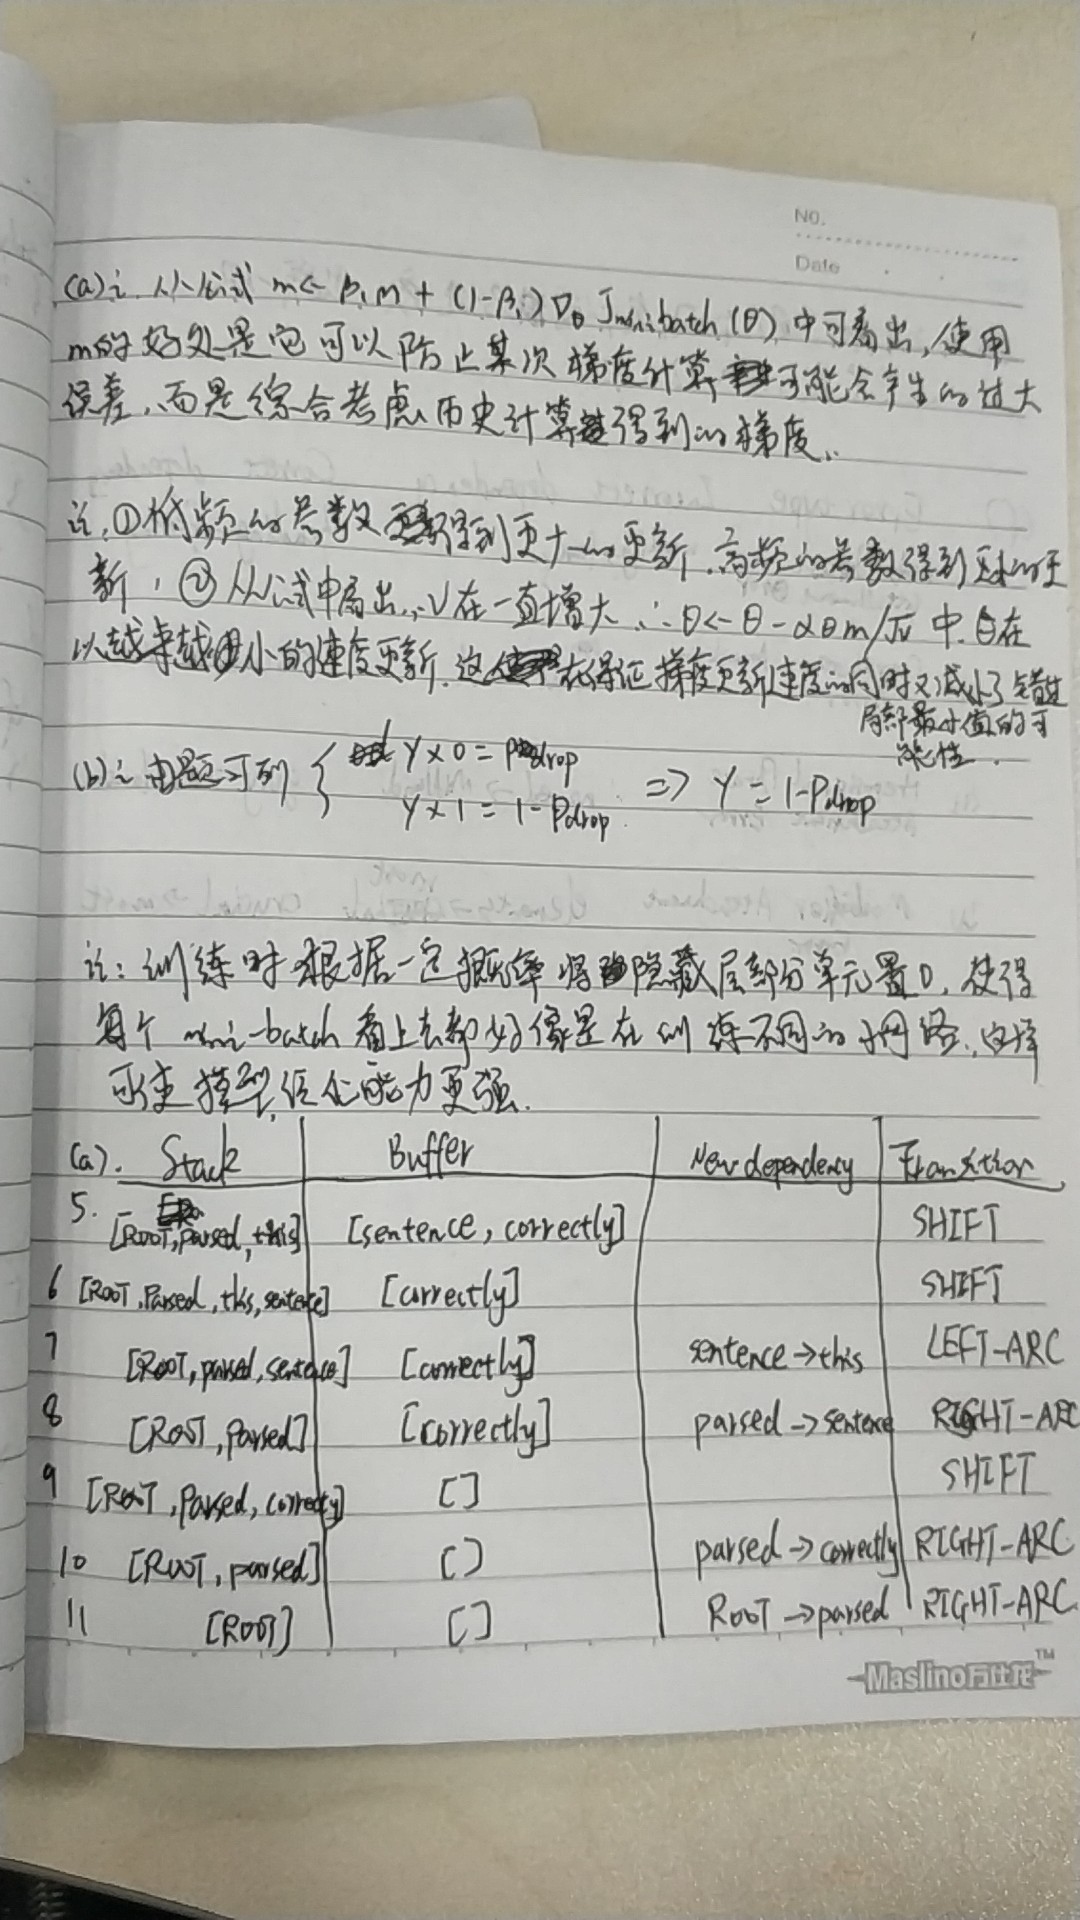 NO.
Date
(a) i. 从公式 m ← β₁m + (1-β₁)∇θ Jminibatch(θ) 中可看出,使用
m的好处是它可以防止某次梯度计算可能会产生的过大
误差,而是综合考虑历史计算得到的梯度.
ii. ①低频的参数得到更大的更新.高频的参数得到更小的更
新, ②从公式中看出 ∵V在一直增大 ∴ θ ← θ - αθm/√v 中, θ在
以越来越小的速度更新.这在保证梯度更新速度的同时又减小了错过
局部最小值的可
能性.
(b) i 由题可列 { γ×0 = Pdrop
γ×1 = 1-Pdrop. => γ = 1-Pdrop
ii: 训练时根据一定概率将隐藏层部分单元置0,使得
每个 mini-batch 看上去都好像是在训练不同的子网络,这样
可变模型泛化能力更强.
(a). Stack Buffer New dependency Transition
5. [ROOT, parsed, this] [sentence, correctly] SHIFT
6 [ROOT, Parsed, this, sentence] [correctly] SHIFT
7 [ROOT, parsed, sentence] [correctly] sentence→this LEFT-ARC
8 [ROOT, Parsed] [correctly] parsed→sentence RIGHT-ARC
9 [ROOT, Parsed, correctly] [] SHIFT
10 [ROOT, parsed] [] parsed→correctly RIGHT-ARC
11 [ROOT] [] ROOT→parsed RIGHT-ARC
Maslino™